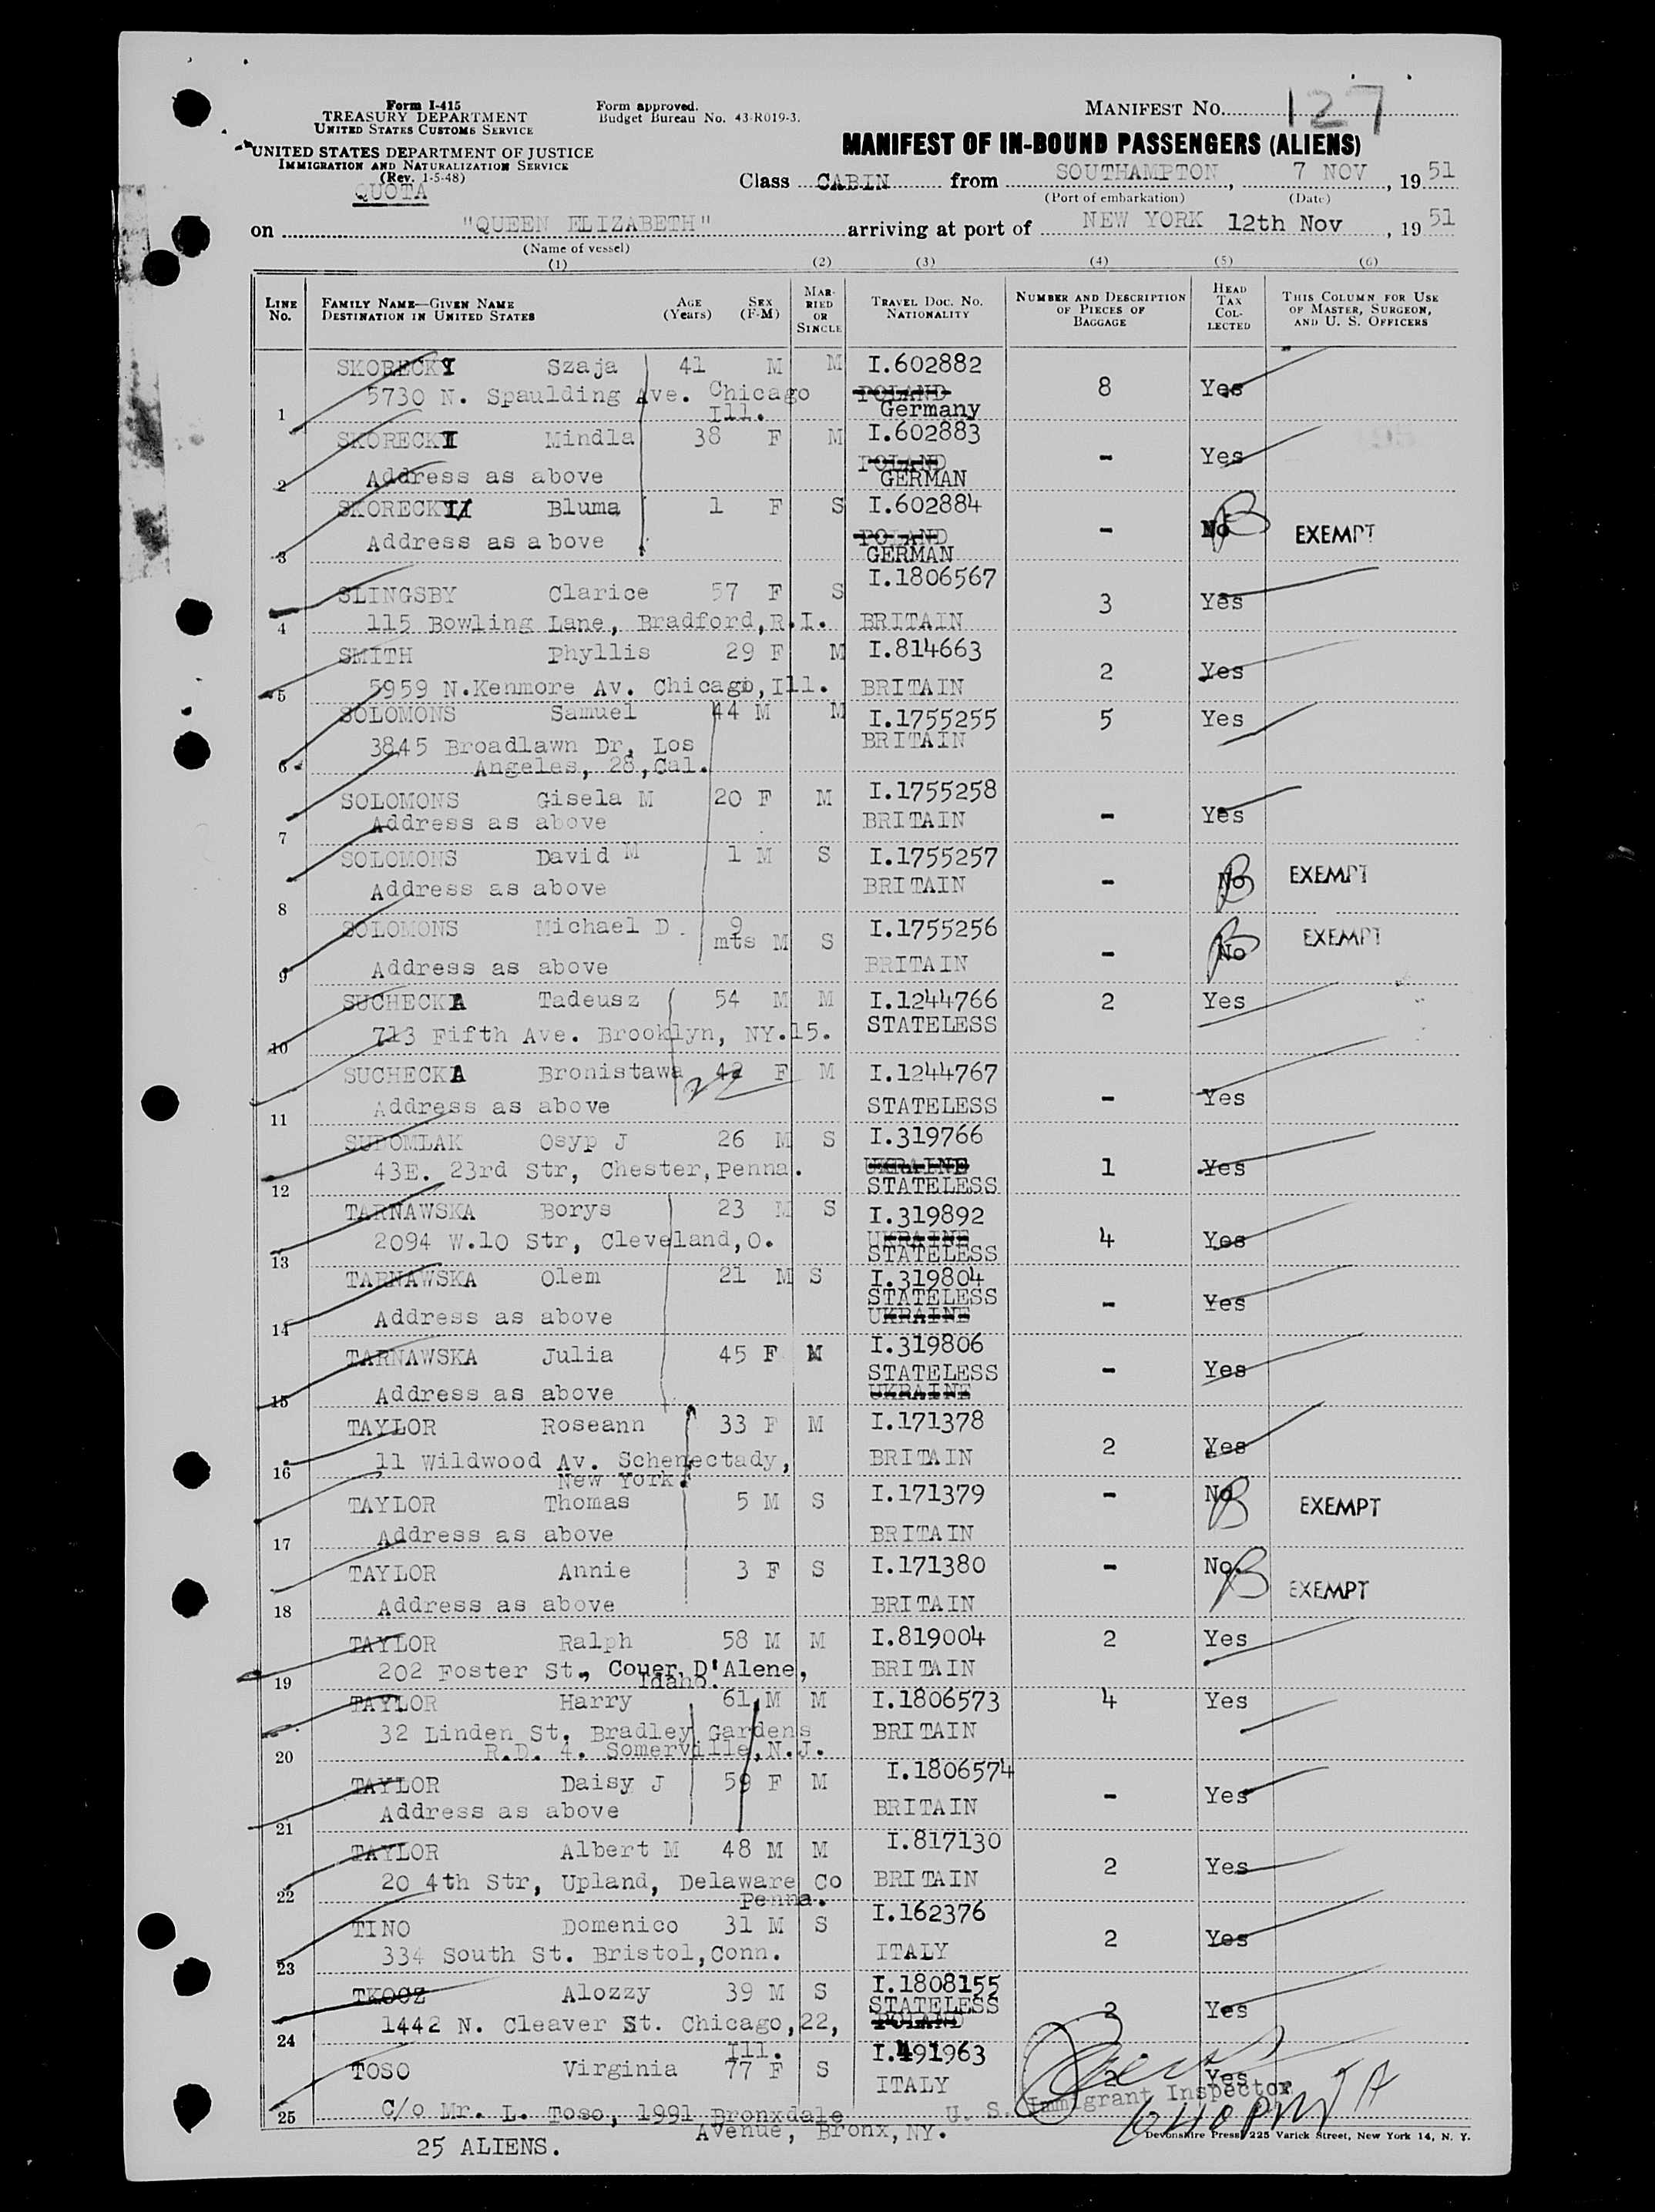 Form I-415
TREASURY DEPARTMENT
UNITED STATES CUSTOMS SERVICE
UNITED STATES DEPARTMENT OF JUSTICE
IMMIGRATION AND NATURALIZATION SERVICE
(Rev. 1-5-48)
QUOTA
Form approved.
Budget Bureau No. 43-R019-3.
MANIFEST NO. 127
MANIFEST OF IN-BOUND PASSENGERS (ALIENS)
Class CABIN from SOUTHAMPTON, 7 NOV, 1951
(Port of embarkation) (Date)
on "QUEEN ELIZABETH" arriving at port of NEW YORK 12th Nov, 1951
(Name of vessel)
(1) (2) (3) (4) (5) (6)
LINE NO. FAMILY NAME—GIVEN NAME DESTINATION IN UNITED STATES AGE (Years) SEX (F-M) MARRIED OR SINGLE TRAVEL DOC. NO. NATIONALITY NUMBER AND DESCRIPTION OF PIECES OF BAGGAGE HEAD TAX COLLECTED THIS COLUMN FOR USE OF MASTER, SURGEON, AND U. S. OFFICERS
SKORECKI Szaja 41 M M I.602882 8 Yes
5730 N. Spaulding Ave. Chicago POLAND
1 Ill. Germany
SKORECKI Mindla 38 F M I.602883 - Yes
POLAND
2 Address as above GERMAN
SKORECKI Bluma 1 F S I.602884 - No EXEMPT
Address as above POLAND
3 GERMAN
SLINGSBY Clarice 57 F S I.1806567 3 Yes
4 115 Bowling Lane, Bradford, R.I. BRITAIN
SMITH Phyllis 29 F M I.814663 2 Yes
5 5959 N.Kenmore Av. Chicago, Ill. BRITAIN
SOLOMONS Samuel 44 M M I.1755255 5 Yes
3845 Broadlawn Dr, Los BRITAIN
6 Angeles, 28, Cal.
SOLOMONS Gisela M 20 F M I.1755258 - Yes
7 Address as above BRITAIN
SOLOMONS David M 1 M S I.1755257 - No EXEMPT
8 Address as above BRITAIN
SOLOMONS Michael D. 9 mts M S I.1755256 - No EXEMPT
9 Address as above BRITAIN
SUCHECKA Tadeusz 54 M M I.1244766 2 Yes
10 713 Fifth Ave. Brooklyn, NY.15. STATELESS
SUCHECKA Bronistawa 42 F M I.1244767 - Yes
11 Address as above STATELESS
Osyp J 26 M S I.319766 1 Yes
43E. 23rd Str, Chester, Penna. UKRAINE
12 STATELESS
TARNAWSKA Borys 23 M S I.319892 4 Yes
2094 W.10 Str, Cleveland, O. UKRAINE
13 STATELESS
TARNAWSKA Olem 21 M S I.319804 - Yes
STATELESS
14 Address as above UKRAINE
TARNAWSKA Julia 45 F M I.319806 - Yes
STATELESS
15 Address as above UKRAINE
TAYLOR Roseann 33 F M I.171378 2 Yes
16 11 Wildwood Av. Schenectady, BRITAIN
New York.
TAYLOR Thomas 5 M S I.171379 - No EXEMPT
17 Address as above BRITAIN
TAYLOR Annie 3 F S I.171380 - No. EXEMPT
18 Address as above BRITAIN
TAYLOR Ralph 58 M M I.819004 2 Yes
19 202 Foster St., Couer D'Alene, BRITAIN
Idaho.
TAYLOR Harry 61 M M I.1806573 4 Yes
32 Linden St. Bradley Gardens BRITAIN
20 R.D. 4. Somerville, N.J.
TAYLOR Daisy J 59 F M I.1806574 - Yes
21 Address as above BRITAIN
TAYLOR Albert M 48 M M I.817130 2 Yes
22 20 4th Str, Upland, Delaware Co BRITAIN
Penna.
TINO Domenico 31 M S I.162376 2 Yes
23 334 South St. Bristol, Conn. ITALY
TKOCZ Alozzy 39 M S I.1808155 2 Yes
STATELESS
24 1442 N. Cleaver St. Chicago, 22, POLAND
Ill.
TOSO Virginia 77 F S I.491963 2 Yes
ITALY
25 C/o Mr. L. Toso, 1991 Bronxdale U. S. Immigrant Inspector
Avenue, Bronx, NY.
25 ALIENS.
Devonshire Press, 225 Varick Street, New York 14, N. Y.